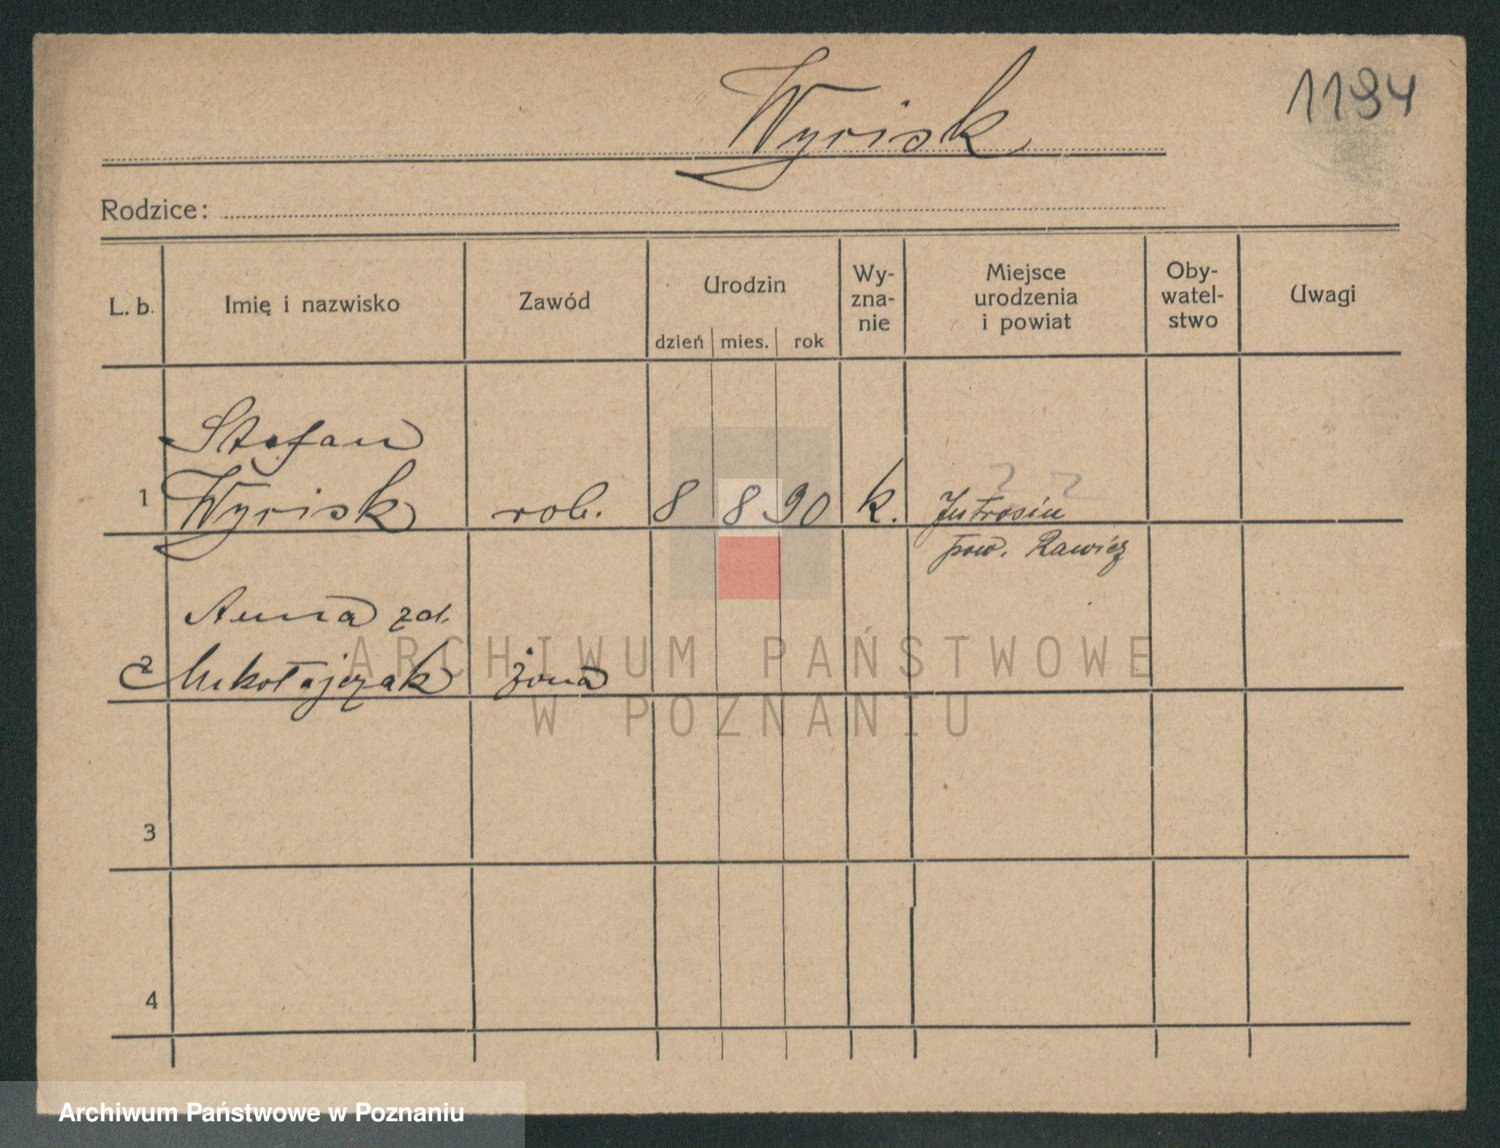 Wyrisk
1194
Rodzice:
L. b.
Imię i nazwisko
Zawód
Urodzin
dzień mies. rok
Wy-
zna-
nie
Miejsce
urodzenia
i powiat
Oby-
watel-
stwo
Uwagi
Stefan
1 Wyrisk rob. 8 8 90 k. Jutrosin
pow. Rawicz
Anna zd.
2 Mikołajczak żona
3
4
ARCHIWUM PAŃSTWOWE
W POZNANIU
Archiwum Państwowe w Poznaniu